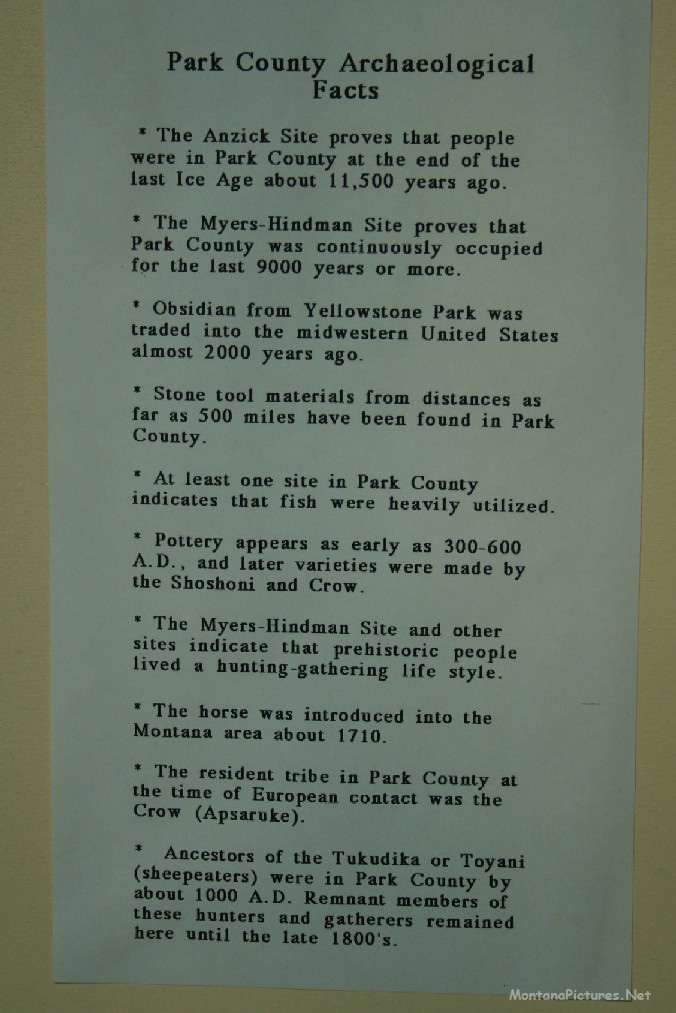 Park County Archaeological
Facts
* The Anzick Site proves that people
were in Park County at the end of the
last Ice Age about 11,500 years ago.
* The Myers-Hindman Site proves that
Park County was continuously occupied
for the last 9000 years or more.
* Obsidian from Yellowstone Park was
traded into the midwestern United States
almost 2000 years ago.
* Stone tool materials from distances as
far as 500 miles have been found in Park
County.
* At least one site in Park County
indicates that fish were heavily utilized.
* Pottery appears as early as 300-600
A.D., and later varieties were made by
the Shoshoni and Crow.
* The Myers-Hindman Site and other
sites indicate that prehistoric people
lived a hunting-gathering life style.
* The horse was introduced into the
Montana area about 1710.
* The resident tribe in Park County at
the time of European contact was the
Crow (Apsaruke).
* Ancestors of the Tukudika or Toyani
(sheepeaters) were in Park County by
about 1000 A.D. Remnant members of
these hunters and gatherers remained
here until the late 1800's.
MontanaPictures.Net